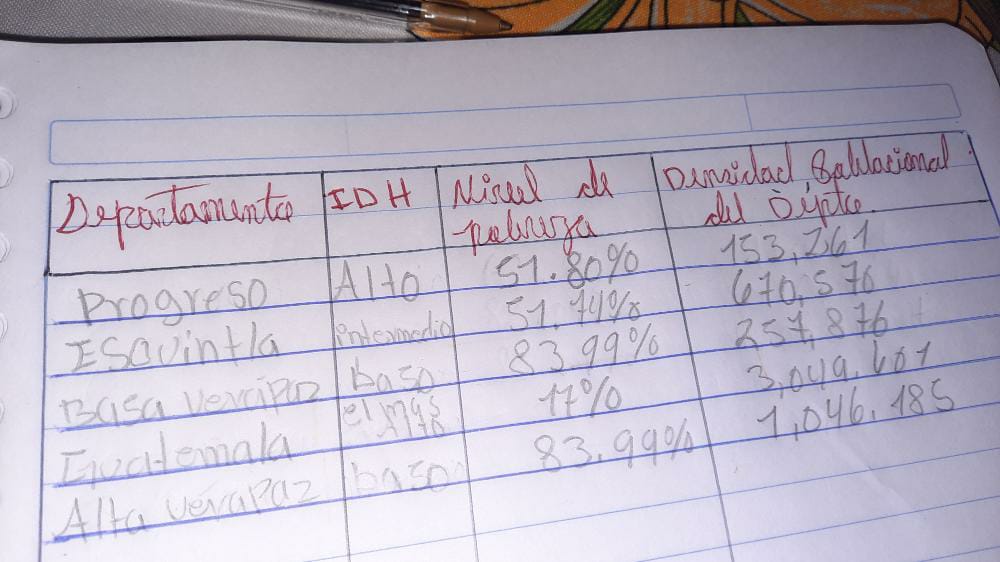 Departamento IDH Nivel de pobreza Densidad Poblacional del Depto.
Progreso Alto 51.80% 153,261
ESquintla intermedio 51.74% 670,576
Basa verapaz baso 83.99% 257,876
Guatemala el mas Alto 17% 3,049,601
Alta verapaz baso 83.99% 1,046.185